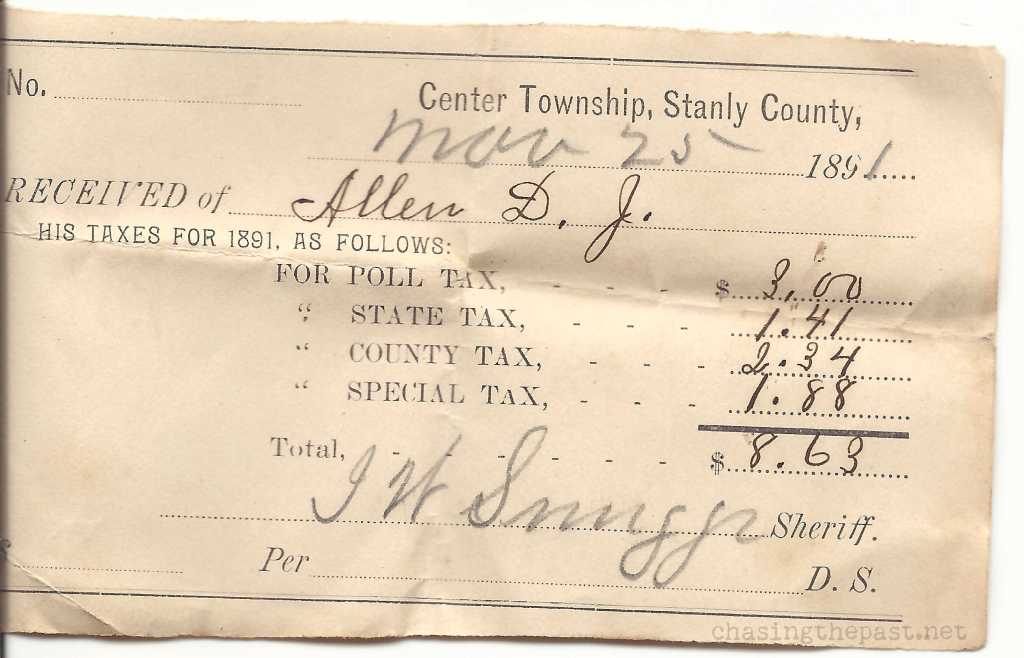 No.
Center Township, Stanly County,
Nov 25 1891
RECEIVED of Allen D. J.
HIS TAXES FOR 1891, AS FOLLOWS:
FOR POLL TAX, - - - $ 3.00
“ STATE TAX, - - - 1.41
“ COUNTY TAX, - - - 2.34
“ SPECIAL TAX, - - - 1.88
Total, - - - - - - $ 8.63
I W Snuggs Sheriff.
Per D. S.
chasingthepast.net